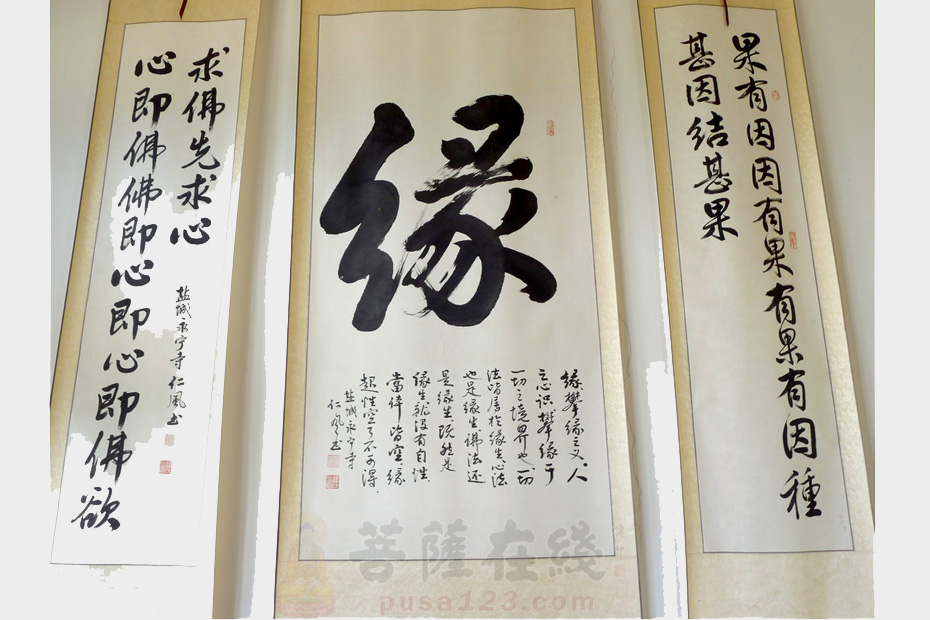 果有因因有果有果有因種
甚因結甚果
緣
緣攀緣之义。人
之心识攀缘于
一切之境界也一切
法皆居於缘生心法
也是缘生佛法还
是缘生既然是
缘生就没有自性
當体皆空缘
起性空了不可得
盐城永宁寺
仁風书
心即佛佛即心即心即佛欲
求佛先求心
盐城永宁寺仁風书
菩薩在綫
pusa123.com